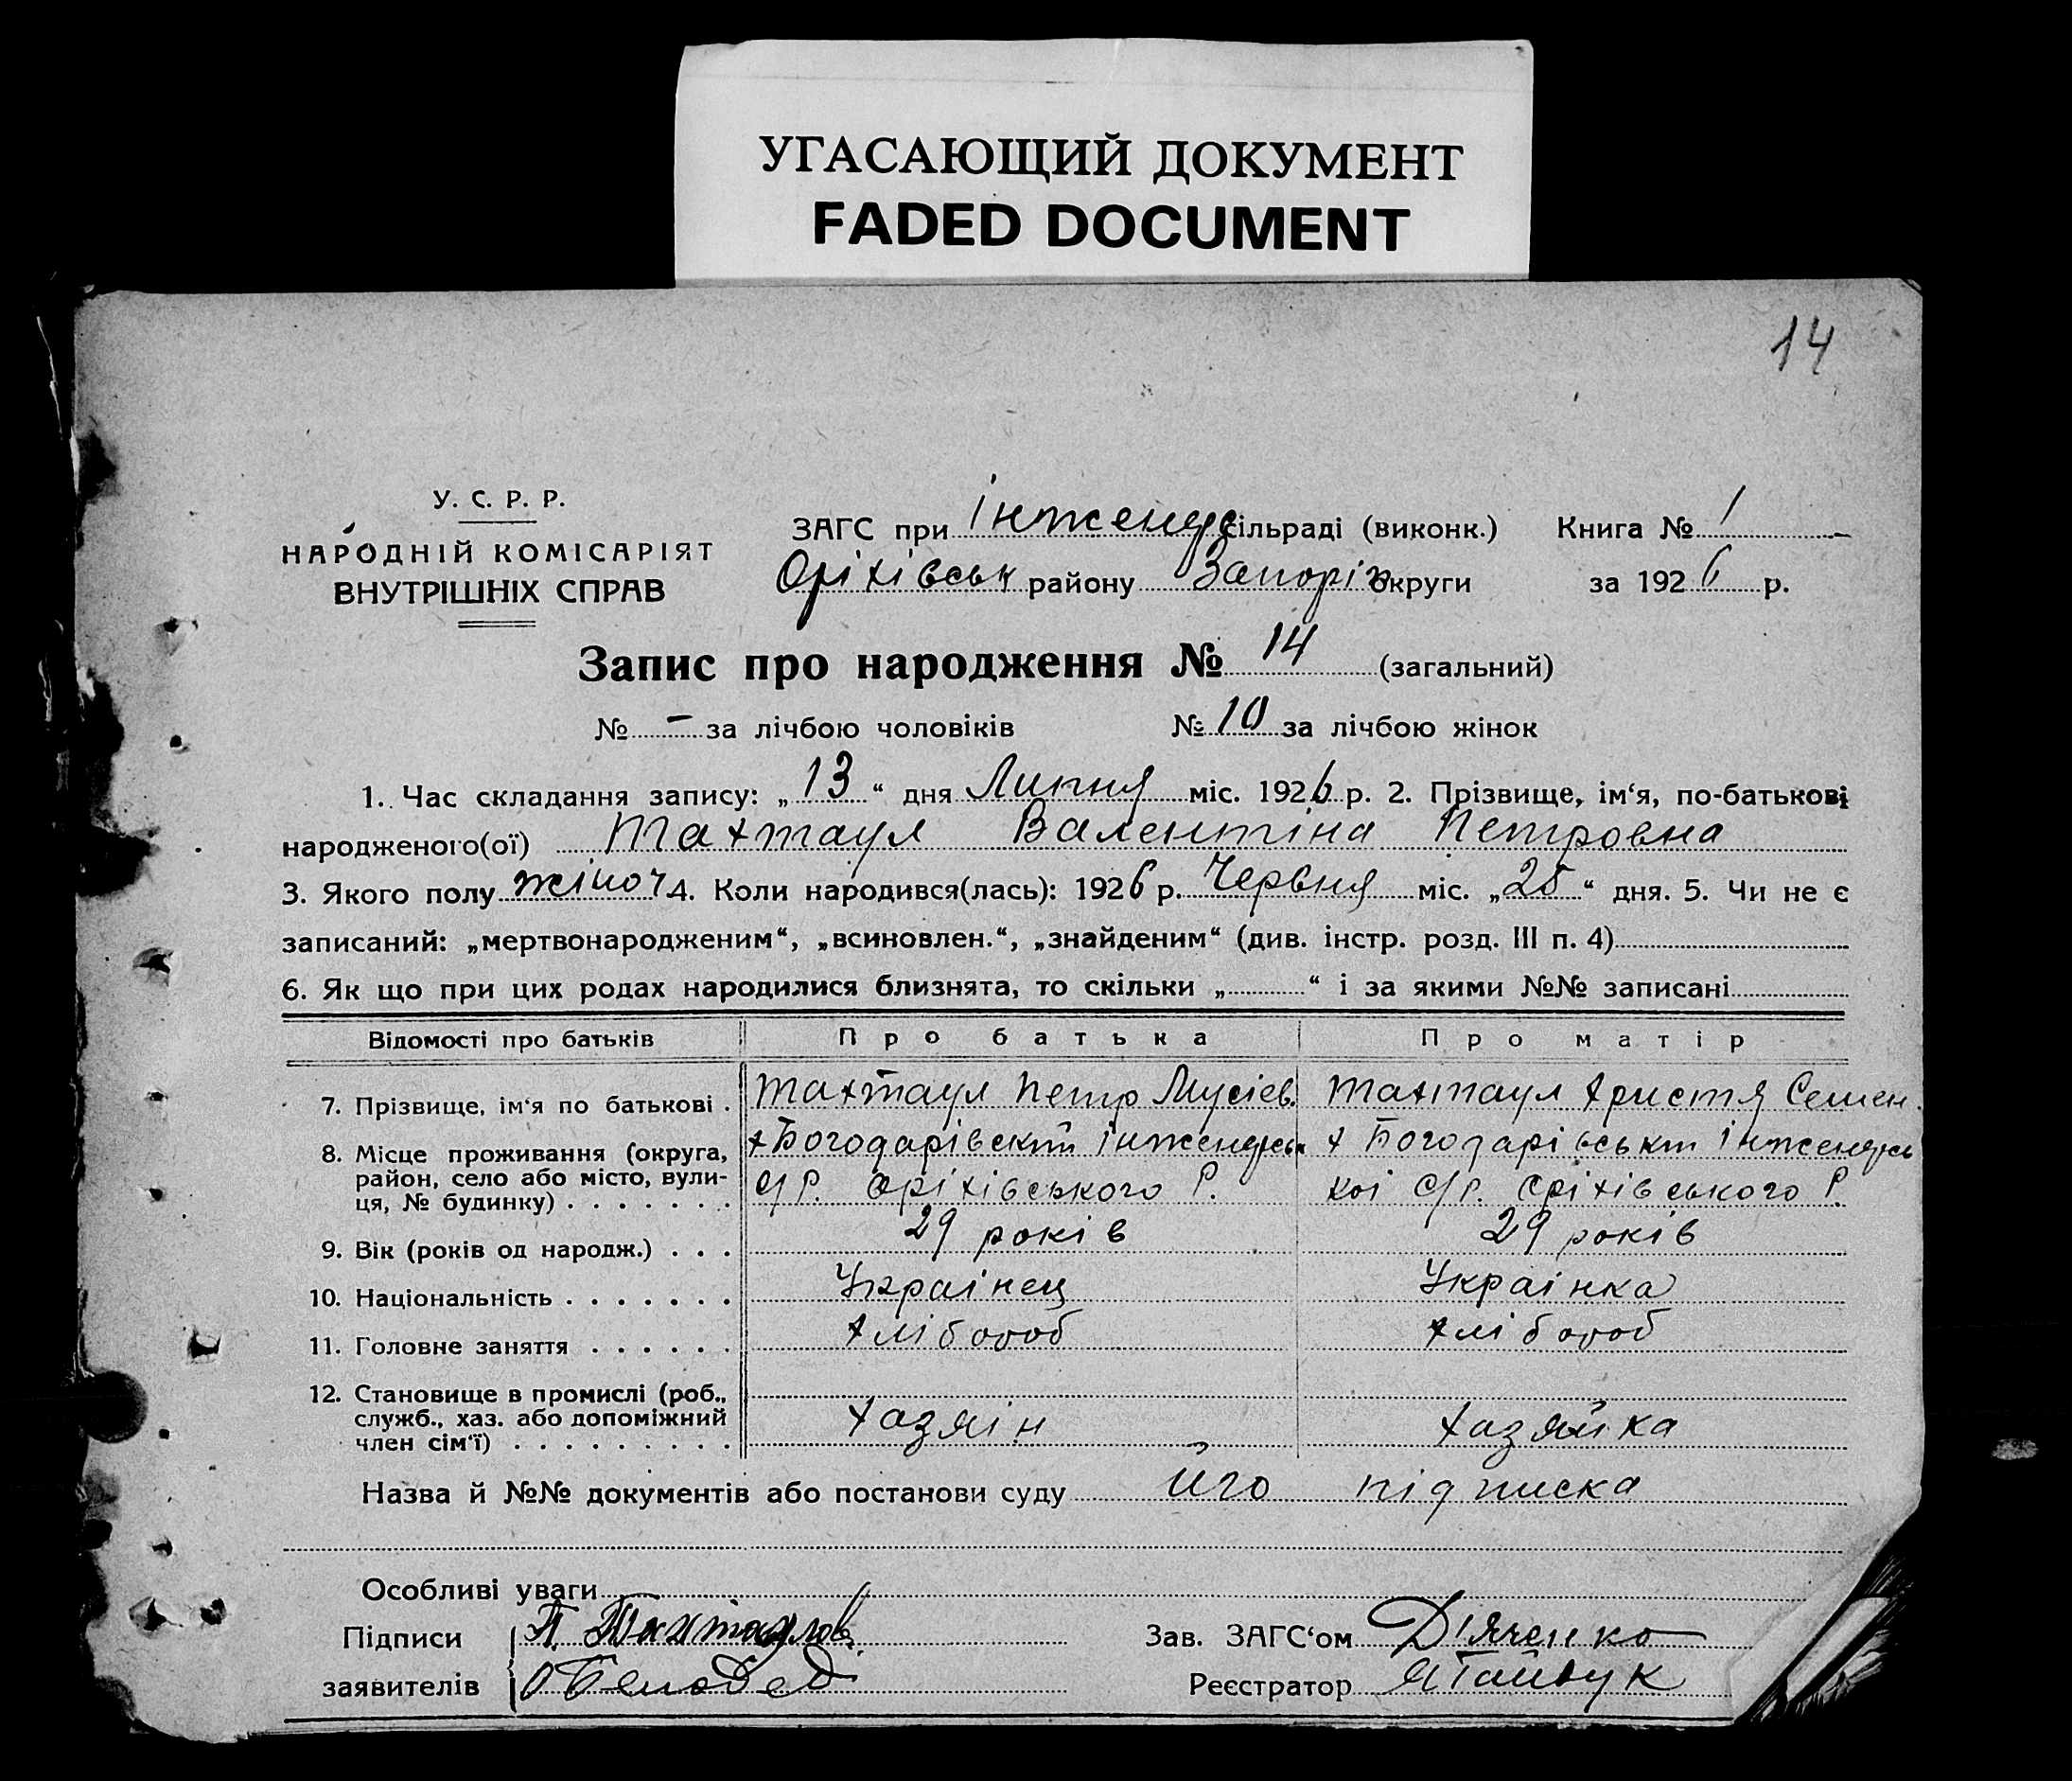 УГАСАЮЩИЙ ДОКУМЕНТ
FADED DOCUMENT
14
У. С. Р. Р.
НАРОДНІЙ КОМІСАРІЯТ
ВНУТРІШНІХ СПРАВ
ЗАГС при Інженер сільраді (виконк.) Книга № 1
Оріхівськ району Запоріж округи за 1926 р.
Запис про народження № 14 (загальний)
№ - за лічбою чоловіків № 10 за лічбою жінок
1. Час складання запису: „13“ дня Липня міс. 1926 р. 2. Прізвище, ім‘я, по-батькові
народженого(ої) Тахтаул Валентіна Петровна
3. Якого полу жіноч 4. Коли народився(лась): 1926 р. Червня міс. „25“ дня. 5. Чи не є
записаний: „мертвонародженим“, „всиновлен.“, „знайденим“ (див. інстр. розд. III п. 4)
6. Як що при цих родах народилися близнята, то скільки „ “ і за якими №№ записані
Відомості про батьків Про батька Про матір
7. Прізвище, ім‘я по батькові . Тахтаул Петр Мусієв. Тахтаул Христя Семен.
8. Місце проживання (округа, район, село або місто, вулиця, № будинку) . . . . . . . х Богодарівский Інженерськ
с/Р. Оріхівського Р. х Богодарівський Інженерсь
кої С/Р. Оріхівського Р.
9. Вік (років од народж.) . . . 29 років 29 років
10. Національність . . . . . . . Українец Українка
11. Головне заняття . . . . . . хлібороб хлібороб
12. Становище в промислі (роб., служб., хаз. або допоміжний член сім‘ї) . . . . . . . . . хазяін хазяйка
Назва й №№ документів або постанови суду його підписка
Особливі уваги
Підписи П. Тахтаулов. Зав. ЗАГС‘ом Дʼяченко
заявителів Реєстратор